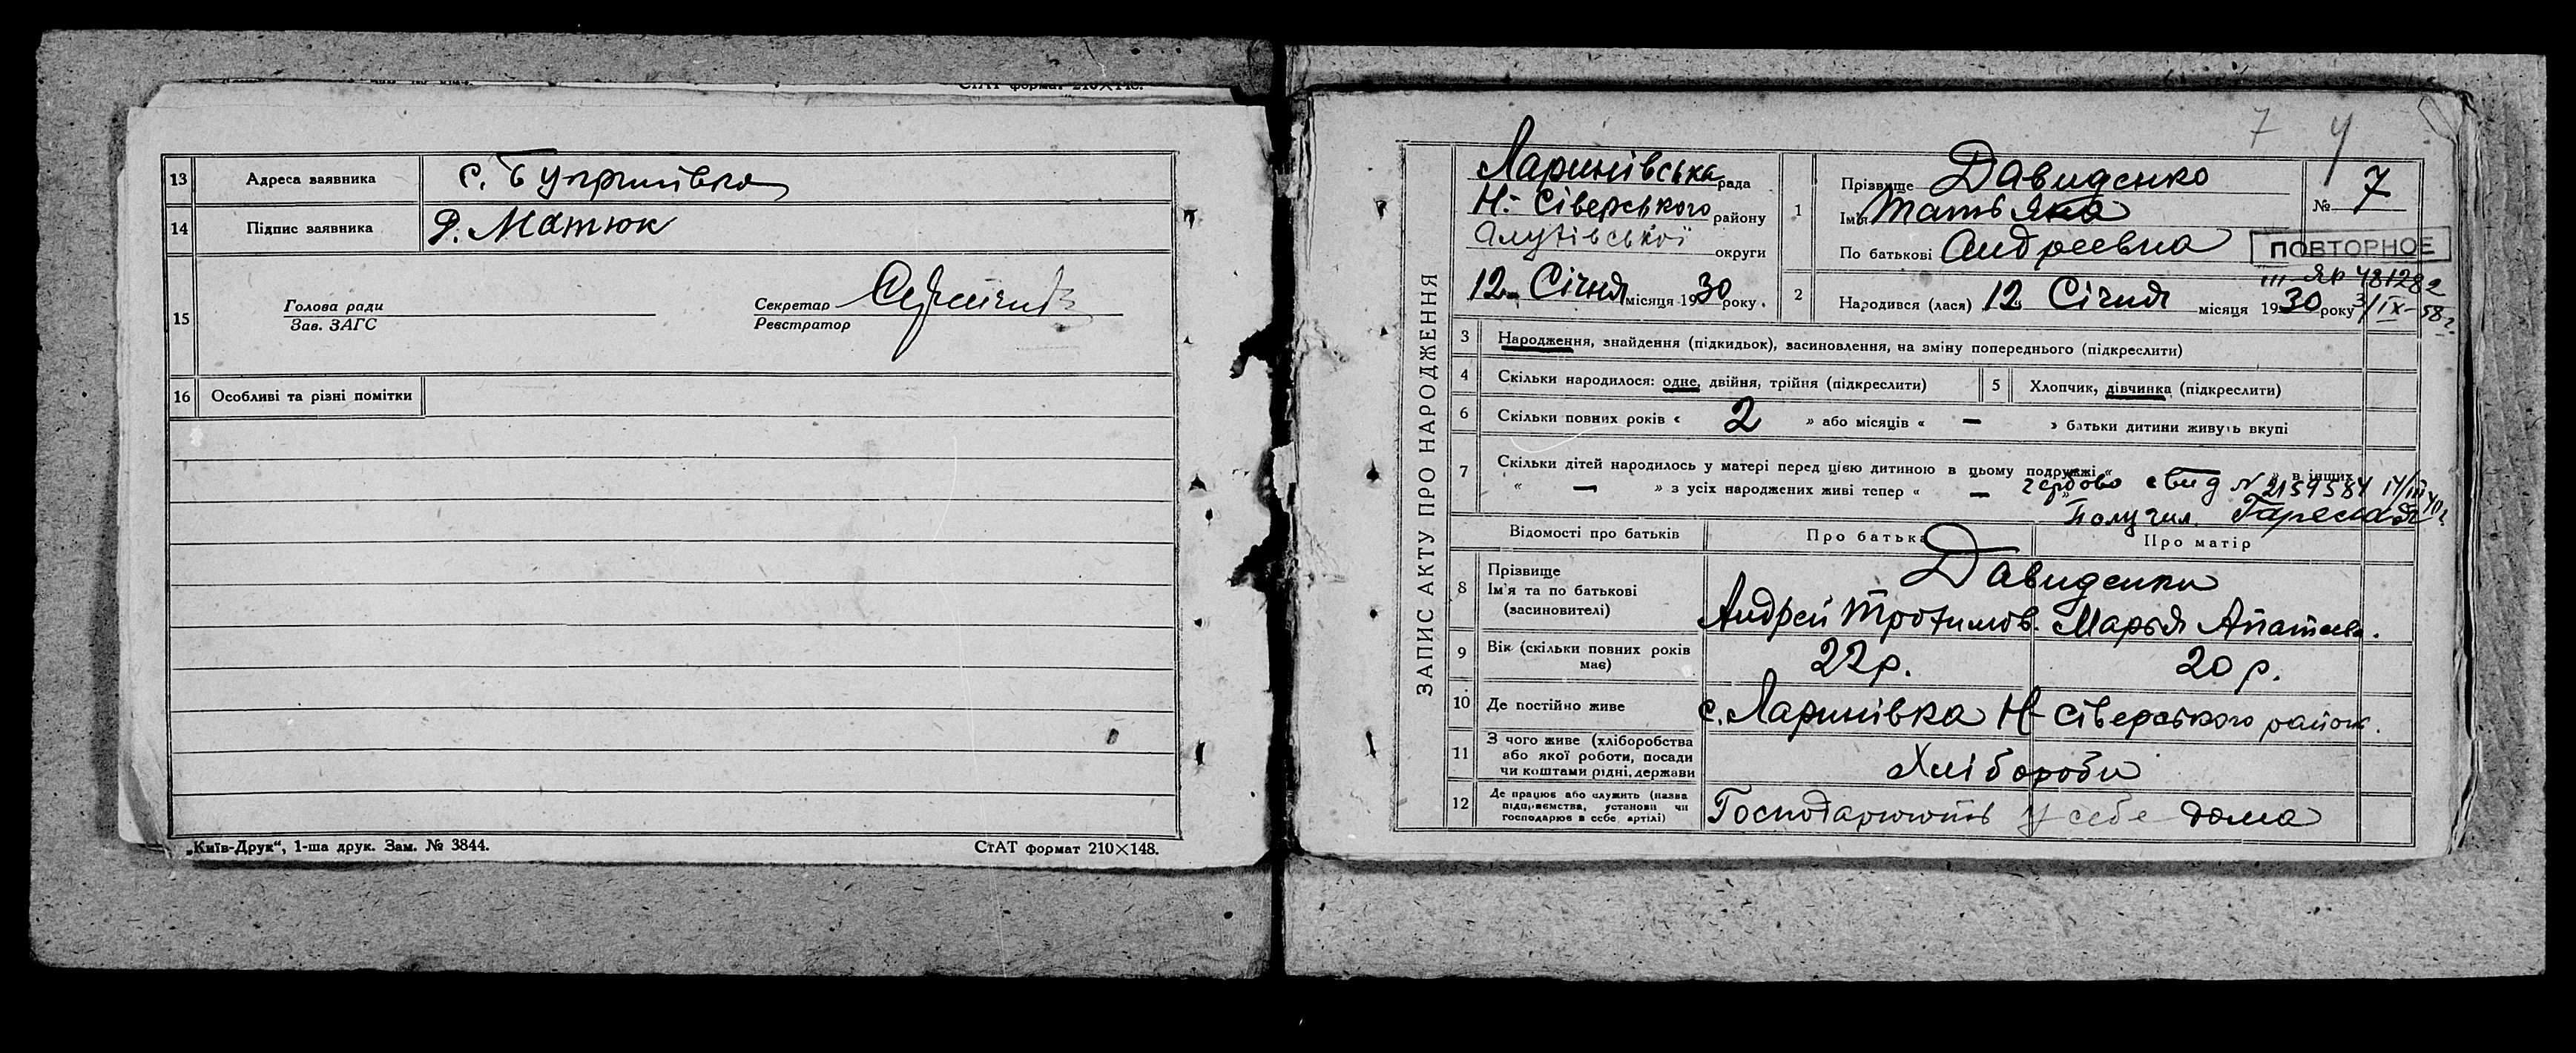 СтАТ формат 210×148.
13 Адреса заявника с.
14 Підпис заявника Матюк
15 Голова ради
Зав. ЗАГС
Секретар
Реєстратор
16 Особливі та різні помітки
„Київ-Друк“, 1-ша друк. Зам. № 3844.
СтАТ формат 210×148.
7
ЗАПИС АКТУ ПРО НАРОДЖЕННЯ
Ларинівська рада
Н.- Сіверського району
округи
12 Січня місяця 1930 року.
1 Прізвище Давиденко
Імя Татьяна
По батькові Андреевна
№ 7
ПОВТОРНОЕ
III-ЯР 481282
3/IX-58 г.
2 Народився (лася) 12 Січня місяця 1930 року
3 Народження, знайдення (підкидьок), засиновлення, на зміну попереднього (підкреслити)
4 Скільки народилося: одне, двійня, трійня (підкреслити)
5 Хлопчик, дівчинка (підкреслити)
6 Скільки повних років « 2 » або місяців « — » батьки дитини живуть вкупі
7 Скільки дітей народилось у матері перед цією дитиною в цьому подружжі « — » в інших
« — » з усіх народжених живі тепер « — »
свид N 2159584
Получил.
Відомості про батьків Про батька Про матір
8 Прізвище
Ім'я та по батькові
(засиновителі)
Давиденки
Андрей Трофимов. Марья
9 Вік (скільки повних років має) 22 р. 20 р.
10 Де постійно живе с. Ларинівка Н-Сіверського району.
11 З чого живе (хліборобства
або якої роботи, посади
чи коштами рідні, держави
Хлібороби
12 Де працює або служить (назва
підприємства, установи чи
господарює в себе, артілі)
Господарюють у себе дома